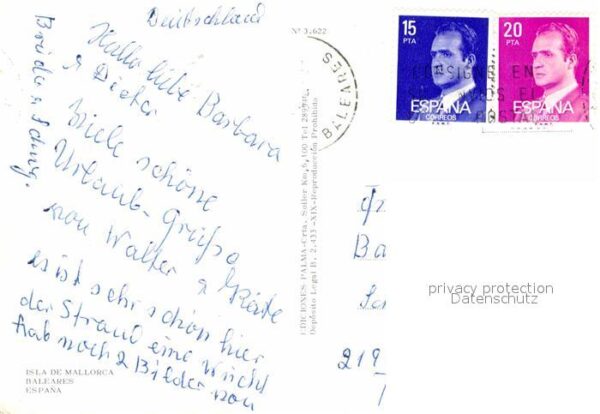 Deutschland
Hallo liebe Barbara
& Dieter
Viele schöne
Urlaub-Grüße
von Walter & Käte
es ist sehr schön hier
der Strand eine Wucht
hab noch 2 Bilder von
Brüder & Schwg.
ISLA DE MALLORCA
BALEARES
ESPAÑA
Nº 3.622
EDICIONES PALMA-Crta. Soller Km.
Depósito Legal B. 2.433-XIX-Reproducción Prohibida
BALEARES
15
PTA
ESPAÑA
CORREOS
20
PTA
ESPAÑA
CORREOS
Ba
219
privacy protection
Datenschutz